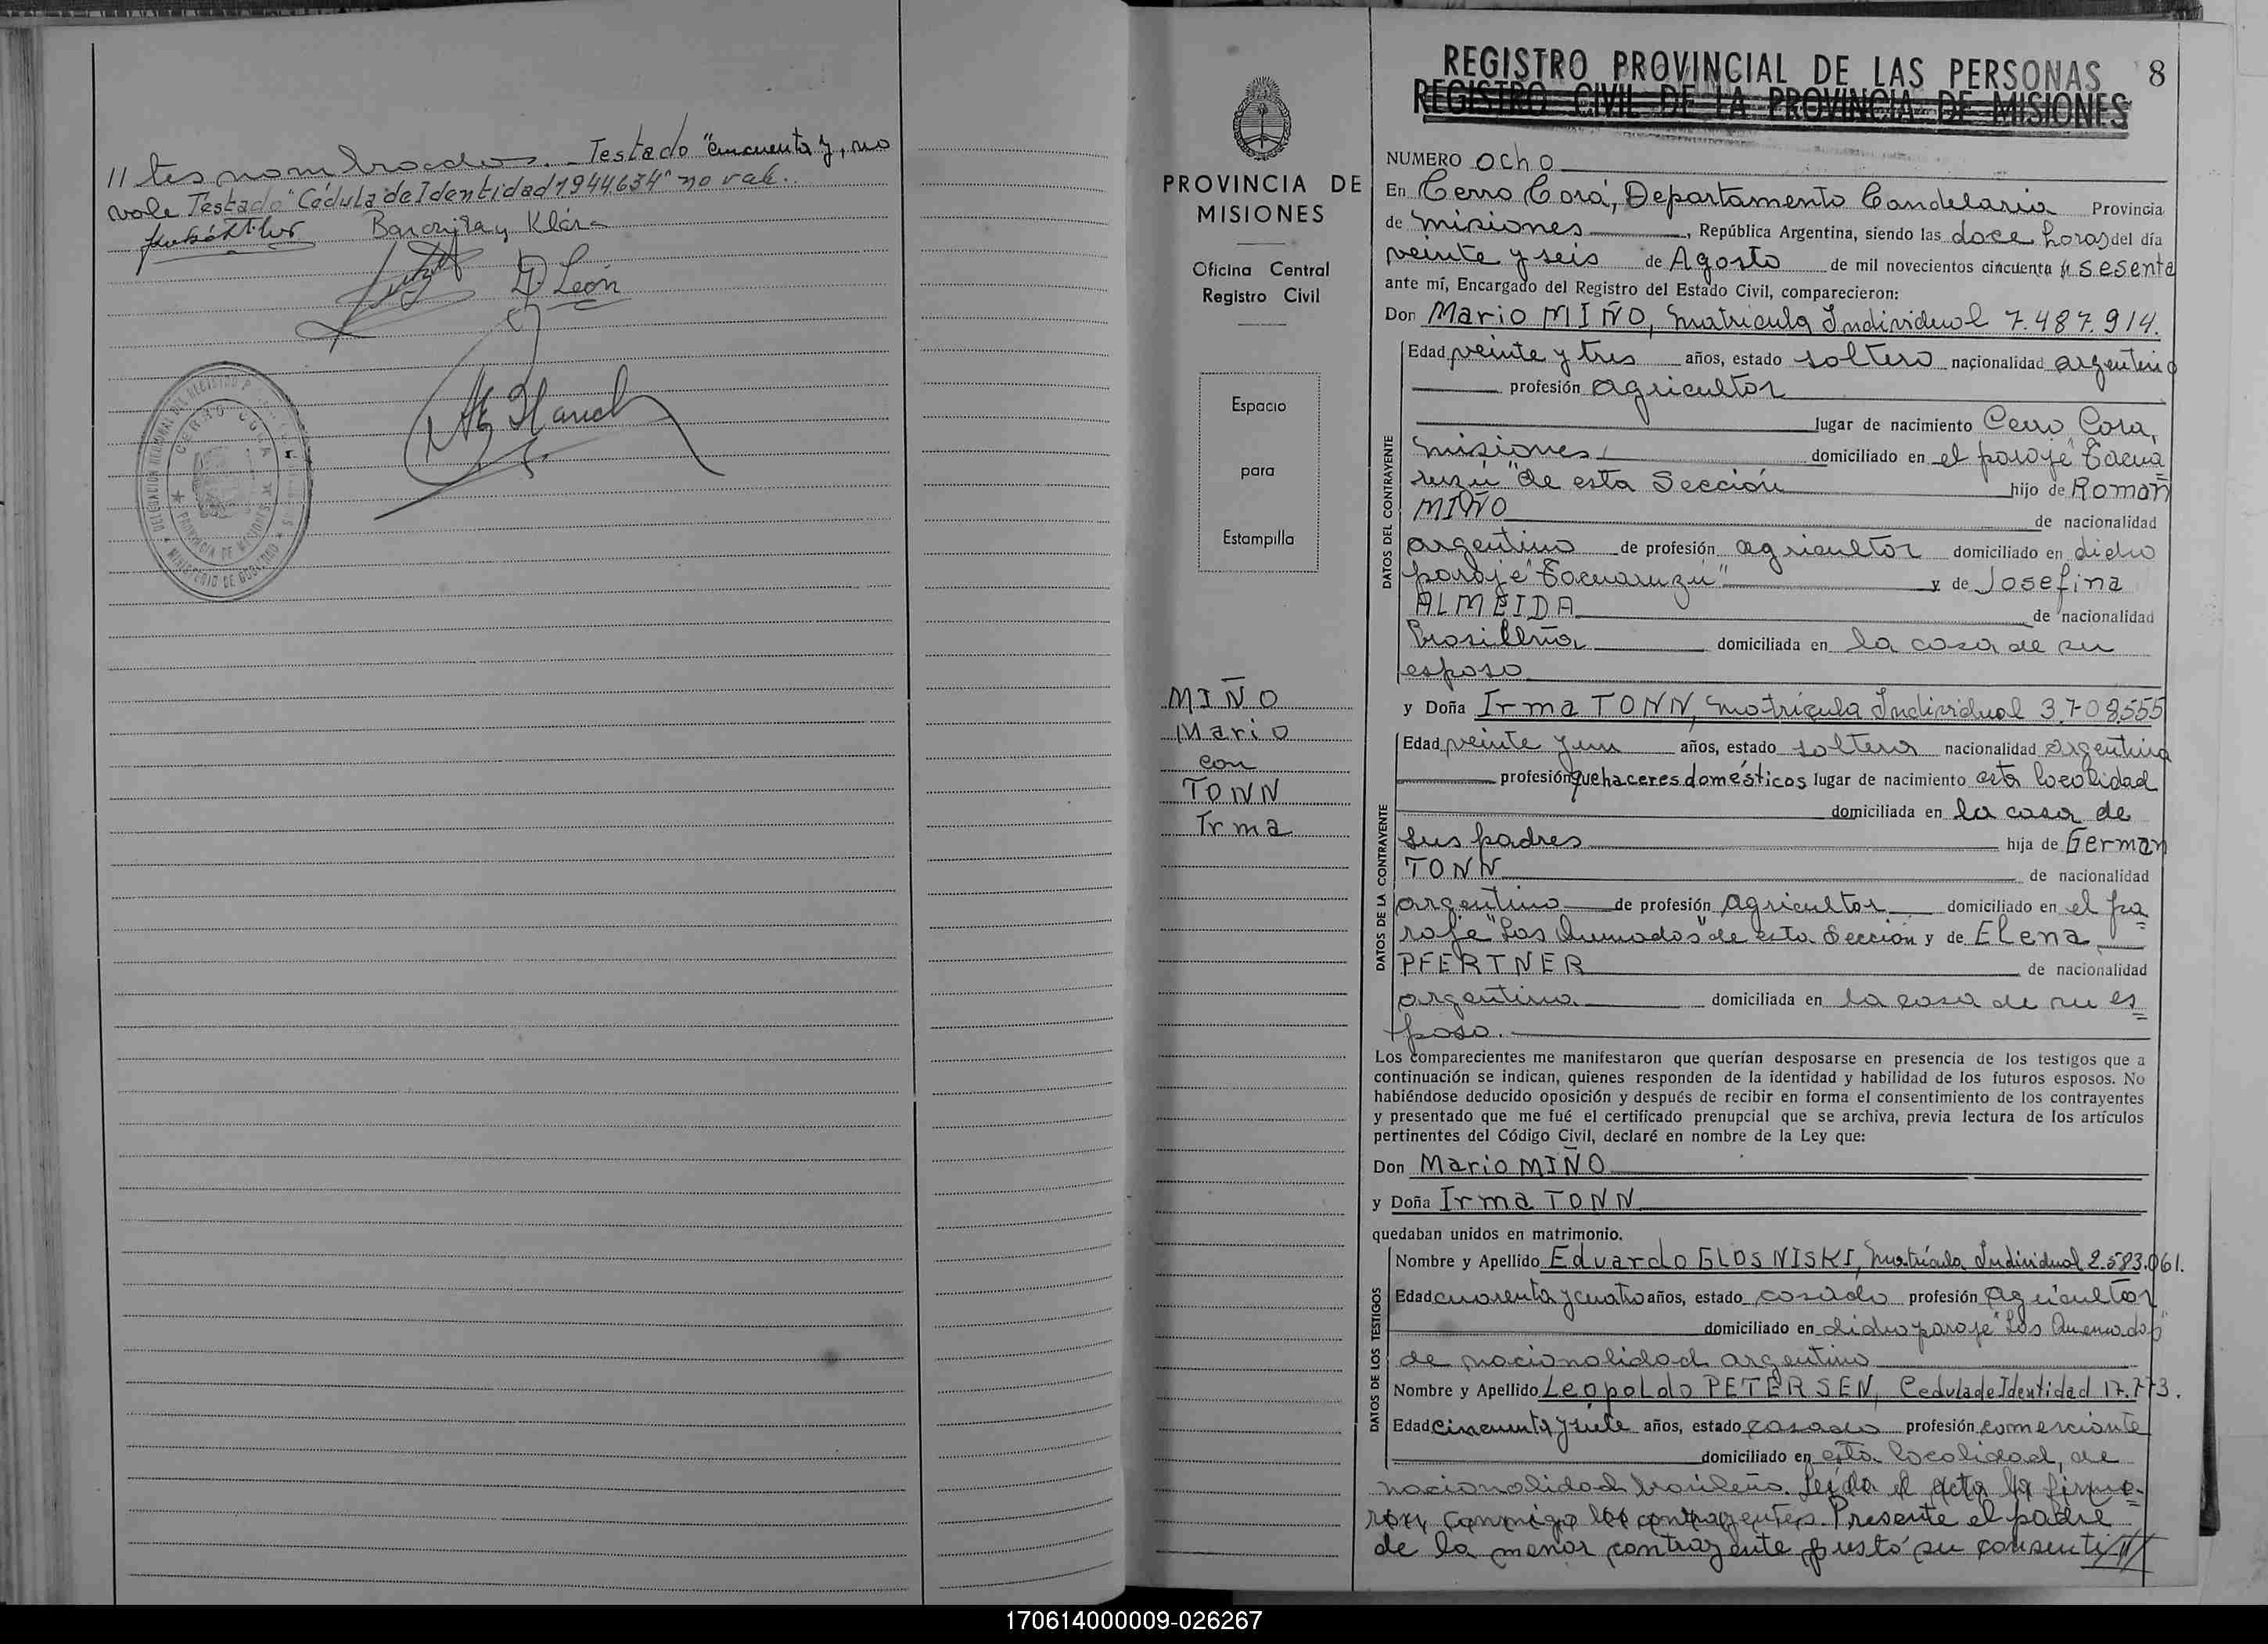 // tes nombrados.- Testado "cincuenta y, no
vale Testado "Cédula de Identidad 1944634" no vale.
Klára
D. León
CERRO CORA
PROVINCIA DE MISIONES
MINISTERIO DE GOBIERNO
PROVINCIA DE
MISIONES
Oficina Central
Registro Civil
Espacio
para
Estampilla
MIÑO
Mario
con
TONN
Irma
REGISTRO PROVINCIAL DE LAS PERSONAS 8
REGISTRO CIVIL DE LA PROVINCIA DE MISIONES
NUMERO ocho
En Cerro Corá, Departamento Candelaria Provincia
de Misiones, República Argentina, siendo las doce horas del día
veinte y seis de Agosto de mil novecientos cincuenta y sesenta
ante mí, Encargado del Registro del Estado Civil, comparecieron:
Don Mario MIÑO, Matrícula Individual 7.487.914.
DATOS DEL CONTRAYENTE
Edad veinte y tres años, estado soltero nacionalidad argentino
profesión agricultor
lugar de nacimiento Cerro Corá,
Misiones, domiciliado en el paraje "Tacua=
ruzú" de esta Sección hijo de Román
MIÑO de nacionalidad
argentino de profesión agricultor domiciliado en dicho
paraje "Tacuaruzú" y de Josefina
ALMEIDA de nacionalidad
brasilleña domiciliada en la casa de su
esposo
y Doña Irma TONN, Matrícula Individual 3.708.555
DATOS DE LA CONTRAYENTE
Edad veinte y un años, estado soltera nacionalidad argentina
profesión quehaceres domésticos lugar de nacimiento esta localidad
domiciliada en la casa de
sus padres hija de German
TONN de nacionalidad
argentino de profesión agricultor domiciliado en el pa=
raje "Los Quemados" de esta Sección y de Elena
PFERTNER de nacionalidad
argentina domiciliada en la casa de su es=
poso.
Los comparecientes me manifestaron que querían desposarse en presencia de los testigos que a
continuación se indican, quienes responden de la identidad y habilidad de los futuros esposos. No
habiéndose deducido oposición y después de recibir en forma el consentimiento de los contrayentes
y presentado que me fué el certificado prenupcial que se archiva, previa lectura de los artículos
pertinentes del Código Civil, declaré en nombre de la Ley que:
Don Mario MIÑO
y Doña Irma TONN
quedaban unidos en matrimonio.
DATOS DE LOS TESTIGOS
Nombre y Apellido Eduardo GLOSNISKI, Matrícula Individual 2.583.061.
Edad cuarenta y cuatro años, estado casado profesión Agricultor
domiciliado en dicho paraje "Los Quemados"
de nacionalidad argentino
Nombre y Apellido Leopoldo PETERSEN, Cedula de Identidad 17.773.
Edad cincuenta y siete años, estado casado profesión comerciante
domiciliado en esta localidad, de
nacionalidad brasileña. Leída el acta la firma=
ron conmigo los contrayentes. Presente el padre
de la menor contrayente prestó su consenti///
170614000009-026267